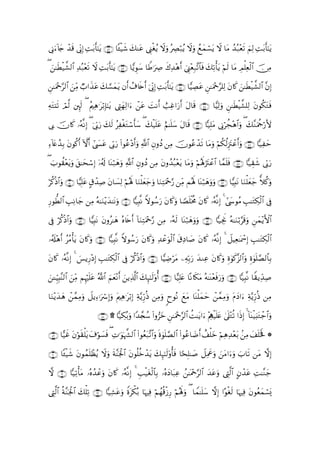 يَٰٓأَبَتِ لِمَ تَعْبُدُ مَا لَا يَسْمَعُ وَلَا يُبْصِرُ وَلَا يُغْنِى عَنكَ شَيْـًٔا ۝ يَٰٓأَبَتِ إِنِّى قَدْ جَآءَنِى
مِنَ ٱلْعِلْمِ مَا لَمْ يَأْتِكَ فَٱتَّبِعْنِىٓ أَهْدِكَ صِرَٰطًا سَوِيًّا ۝ يَٰٓأَبَتِ لَا تَعْبُدِ ٱلشَّيْطَٰنَ ۖ
إِنَّ ٱلشَّيْطَٰنَ كَانَ لِلرَّحْمَٰنِ عَصِيًّا ۝ يَٰٓأَبَتِ إِنِّىٓ أَخَافُ أَن يَمَسَّكَ عَذَابٌ مِّنَ ٱلرَّحْمَٰنِ
فَتَكُونَ لِلشَّيْطَٰنِ وَلِيًّا ۝ قَالَ أَرَاغِبٌ أَنتَ عَنْ ءَالِهَتِى يَٰٓإِبْرَٰهِيمُ ۖ لَئِن لَّمْ تَنتَهِ
لَأَرْجُمَنَّكَ ۖ وَٱهْجُرْنِى مَلِيًّا ۝ قَالَ سَلَٰمٌ عَلَيْكَ ۖ سَأَسْتَغْفِرُ لَكَ رَبِّىٓ ۖ إِنَّهُۥ كَانَ بِى
حَفِيًّا ۝ وَأَعْتَزِلُكُمْ وَمَا تَدْعُونَ مِن دُونِ ٱللَّهِ وَأَدْعُوا۟ رَبِّى عَسَىٰٓ أَلَّآ أَكُونَ بِدُعَآءِ
رَبِّى شَقِيًّا ۝ فَلَمَّا ٱعْتَزَلَهُمْ وَمَا يَعْبُدُونَ مِن دُونِ ٱللَّهِ وَهَبْنَا لَهُۥٓ إِسْحَٰقَ وَيَعْقُوبَ ۖ
وَكُلًّا جَعَلْنَا نَبِيًّا ۝ وَوَهَبْنَا لَهُم مِّن رَّحْمَتِنَا وَجَعَلْنَا لَهُمْ لِسَانَ صِدْقٍ عَلِيًّا ۝ وَٱذْكُرْ
فِى ٱلْكِتَٰبِ مُوسَىٰٓ ۚ إِنَّهُۥ كَانَ مُخْلَصًا وَكَانَ رَسُولًا نَّبِيًّا ۝ وَنَٰدَيْنَٰهُ مِن جَانِبِ ٱلطُّورِ
ٱلْأَيْمَنِ وَقَرَّبْنَٰهُ نَجِيًّا ۝ وَوَهَبْنَا لَهُۥ مِن رَّحْمَتِنَآ أَخَاهُ هَٰرُونَ نَبِيًّا ۝ وَٱذْكُرْ فِى
ٱلْكِتَٰبِ إِسْمَٰعِيلَ ۚ إِنَّهُۥ كَانَ صَادِقَ ٱلْوَعْدِ وَكَانَ رَسُولًا نَّبِيًّا ۝ وَكَانَ يَأْمُرُ أَهْلَهُۥ
بِٱلصَّلَوٰةِ وَٱلزَّكَوٰةِ وَكَانَ عِندَ رَبِّهِۦ مَرْضِيًّا ۝ وَٱذْكُرْ فِى ٱلْكِتَٰبِ إِدْرِيسَ ۚ إِنَّهُۥ كَانَ
صِدِّيقًا نَّبِيًّا ۝ وَرَفَعْنَٰهُ مَكَانًا عَلِيًّا ۝ أُو۟لَٰٓئِكَ ٱلَّذِينَ أَنْعَمَ ٱللَّهُ عَلَيْهِم مِّنَ ٱلنَّبِيِّـۧنَ
مِن ذُرِّيَّةِ ءَادَمَ وَمِمَّنْ حَمَلْنَا مَعَ نُوحٍ وَمِن ذُرِّيَّةِ إِبْرَٰهِيمَ وَإِسْرَٰٓءِيلَ وَمِمَّنْ هَدَيْنَا
وَٱجْتَبَيْنَآ ۚ إِذَا تُتْلَىٰ عَلَيْهِمْ ءَايَٰتُ ٱلرَّحْمَٰنِ خَرُّوا۟ سُجَّدًا وَبُكِيًّا ۩ ۝
۞ فَخَلَفَ مِنۢ بَعْدِهِمْ خَلْفٌ أَضَاعُوا۟ ٱلصَّلَوٰةَ وَٱتَّبَعُوا۟ ٱلشَّهَوَٰتِ ۖ فَسَوْفَ يَلْقَوْنَ غَيًّا ۝
إِلَّا مَن تَابَ وَءَامَنَ وَعَمِلَ صَٰلِحًا فَأُو۟لَٰٓئِكَ يَدْخُلُونَ ٱلْجَنَّةَ وَلَا يُظْلَمُونَ شَيْـًٔا ۝
جَنَّٰتِ عَدْنٍ ٱلَّتِى وَعَدَ ٱلرَّحْمَٰنُ عِبَادَهُۥ بِٱلْغَيْبِ ۚ إِنَّهُۥ كَانَ وَعْدُهُۥ مَأْتِيًّا ۝ لَّا
يَسْمَعُونَ فِيهَا لَغْوًا إِلَّا سَلَٰمًا ۖ وَلَهُمْ رِزْقُهُمْ فِيهَا بُكْرَةً وَعَشِيًّا ۝ تِلْكَ ٱلْجَنَّةُ ٱلَّتِى